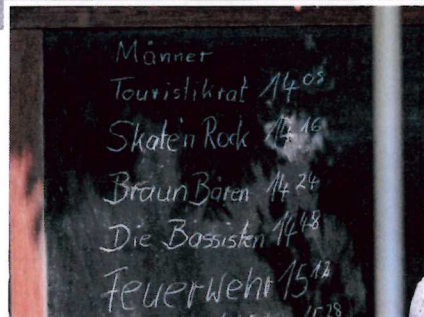 Männer
Touristikrat 14 08
Skate'n Rock 14 16
Braun Bären 14 24
Die Bassisten 14 48
Feuerwehr 15 12
15 28